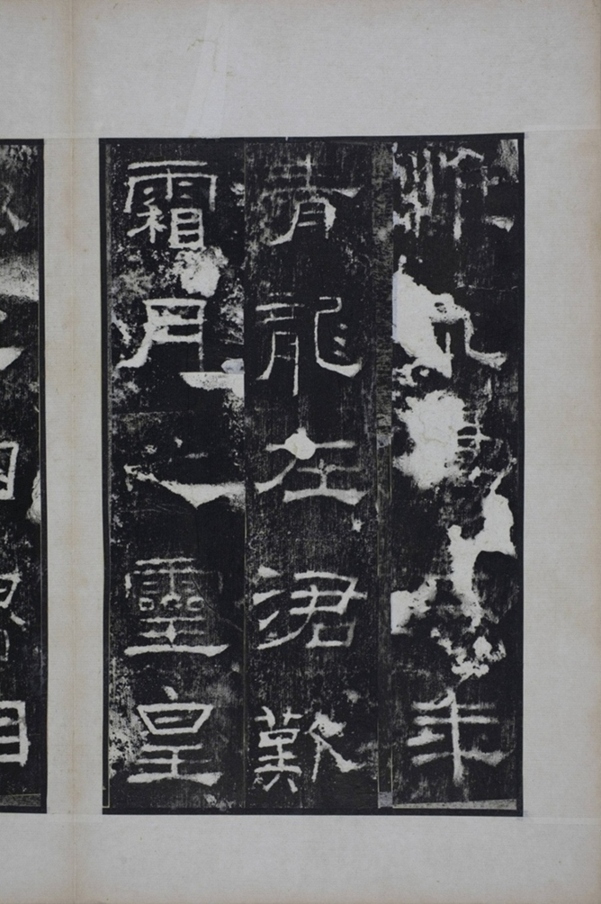 惟永年
青龍在涒歎
霜月之靈皇